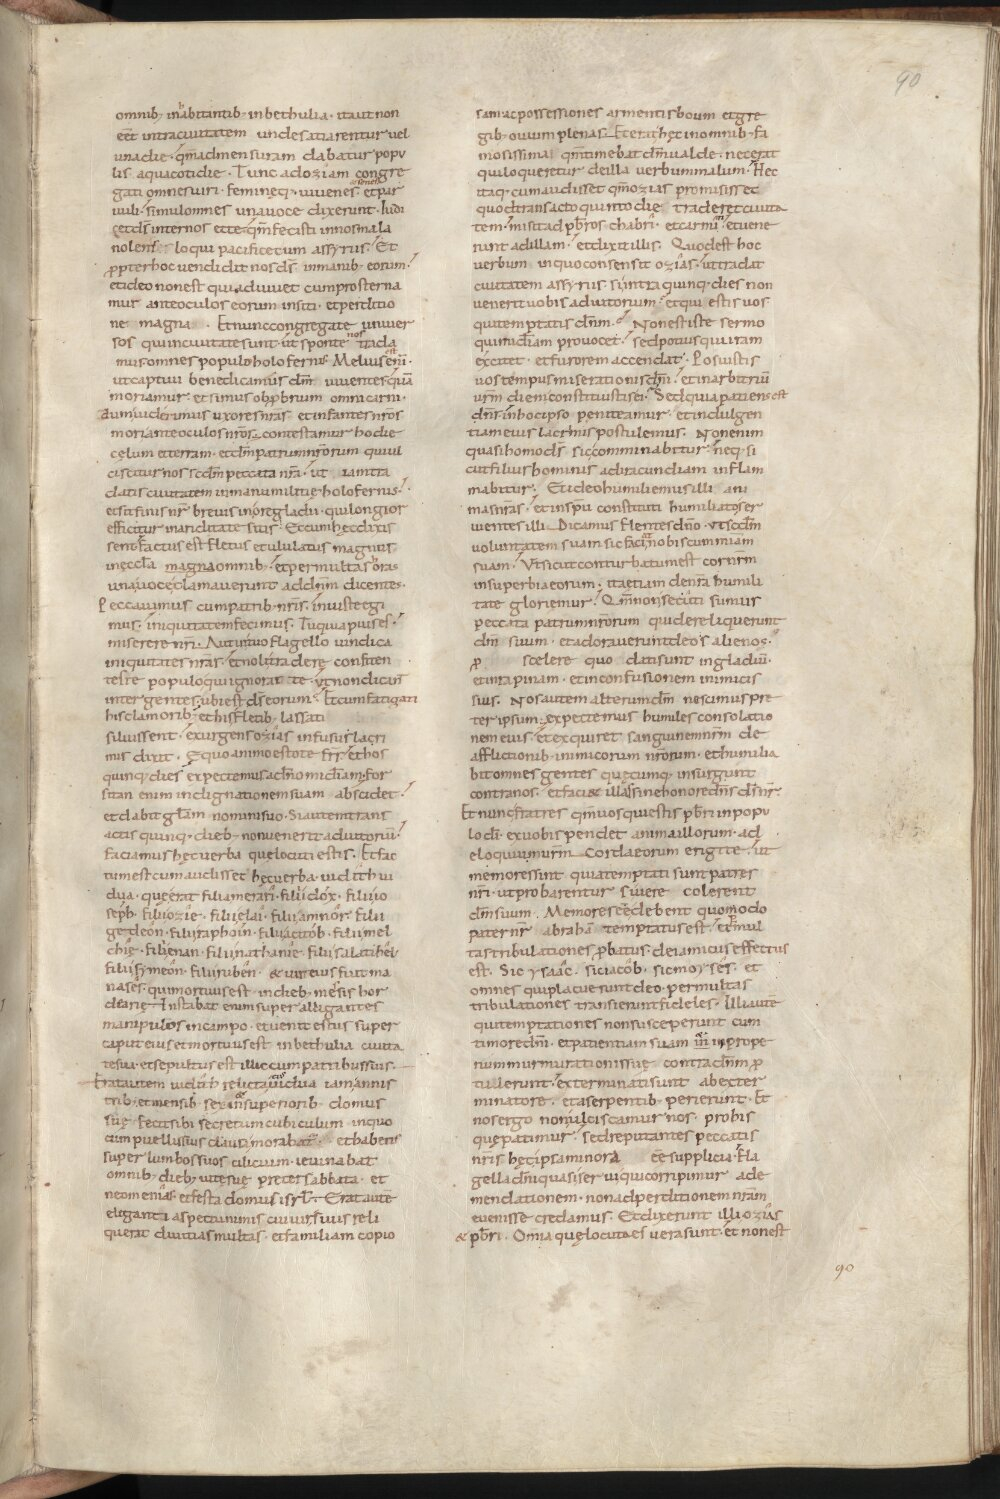 90
omnib; inhabitantib; inbethulia · itaut non
eēt intra ciuitatem unde satiarentur uel
una die · qm̄ admensuram dabatur popu
lis aqua cotidie · Tunc ad oziam congre
gati omnes uiri · femineq; · iuuenes senes et par
uuli · simul omnes una uoce dixerunt · Iudi
cet dſ̄ inter nos et te · qm̄ fecisti in nos mala
nolens loqui pacifice cum assyriis · Et
propter hoc uendidit nos dſ̄ in manib; eorum ·
et ideo non est qui adiuuet cum prosterna
mur ante oculos eorum in siti · et perditio
ne magna · Et nunc congregate uniuer
sos qui in ciuitate sunt · ut sponte nos trada
mus omnes populo holofernis · Melius est enī ·
ut captiui benedicamus dn̄m uiuentes quā
moriamur · et simus obprobrium omni carni ·
cum uiderimus uxores nr̄as · et infantes nr̄os
mori ante oculos nr̄os · contestamur hodie
cęlum et terram · et dn̄m patrum nr̄orum qui ul
ciscitur nos scd̄m peccata nr̄a · ut iam tra
datis ciuitatem in manu militię holofernis ·
et sit finis nr̄ breuis in ore gladii · qui longior
efficitur in ariditate sitis · Et cum hęc dixis
sent factus est fletus et ululatus magnus
in ęccl̄a magna omnib; · et per multas horas
una uoce clamauerunt ad dn̄m dicentes ·
Peccauimus cum patrib; nr̄is · iniuste egi
mus · iniquitatem fecimus · Tu quia pius es ·
miserere nr̄i · Aut in tuo flagello uindica
iniquitates nr̄as · et noli tradere confiten
tes te populo qui ignorat te · ut non dicant
inter gentes · ubi est dſ̄ eorum · Et cum fatigati
his clamorib; et his fletib; lassati
siluissent · exurgens ozias infusus lacri
mis dixit · Ęquo animo estote frī · et hos
quinq; dies expectemus a dn̄o misericordiam · for
sitan enim indignationem suam abscidet ·
et dabit glām nomini suo · Si autem trans
actis quinq; dieb; non uenerit adiutoriū ·
faciamus hęc uerba que locuti estis · Et fac
tum est cum audisset hęc uerba · iudith ui
dua · que erat filia merari · filii idox · filii io
seph · filii ozie · filii elai · filii amnor · filii
gedeon · filii raphoin · filii acitob · filii mel
chię · filii enan · filii nathanie · filii salatihel
filii symeon · filii ruben · & uir eius fuit ma
nases · qui mortuus est in dieb; mesis hor
dearię · Instabat enim super alligantes
manipulos in campo · et uenit estus super
caput eius et mortuus est in bethulia ciuita
te sua · et sepultus est illic cum patribus suis ·
Erat autem iudith relicta eius uidua iam annis
trib; et mensib; sex in superiorib; domus
suę · fecit sibi secretum cubiculum in quo
cum puellis suis clausa morabatur · et habens
super lumbos suos cilicium · ieiunabat
omnib; dieb; uitę suę preter sabbata · et
neomenias et festa domus isrl̄ · Erat autē
eliganti aspectu nimis cui uir suus reli
querat diuitias multas · et familiam copio
sam ac possessiones armentis boum et gre
gib; ouium plenas · Et erat hęc in omnib; fa
mosissima · qm̄ timebat dn̄m ualde · nec erat
qui loqueretur de illa uerbum malum · Hec
itaq; cum audisset qm̄ ozias promisisset
quod transacto quinto die traderet ciuita
tem · misit ad pbr̄os chabri · et carmin · et uene
runt ad illam · et dixit illis · Quod est hoc
uerbum in quo consensit ozias · ut tradat
ciuitatem assyriis si intra quinq; dies non
uenerit uobis adiutorium · et qui estis uos
qui temptatis dn̄m · Non est iste sermo
qui misericordiam prouocet · sed potius qui iram
excitet · et furorem accendat · Posuistis
uos tempus miserationis dn̄i · et in arbitriū
ur̄m diem constituistis ei · Sed quia patiens est
dn̄s in hoc ipso peniteamur · et indulgen
tiam eius lacrimis postulemus · Non enim
quasi homo dſ̄ sic comminabitur · neq; si
cut filius hominis ad iracundiam inflam
mabitur · Et ideo humiliemus illi ani
mas nr̄as · et in spū constituti humiliato ser
uientes illi · Dicamus flentes dn̄o · ut scd̄m
uoluntatem suam sic faciat nobiscum miam
suam · Ut sicut conturbatum est cor nr̄m
in superbia eorum · ita etiam de nr̄a humili
tate gloriemur · Qm̄ non secuti sumus
peccata patrum nr̄orum qui dereliquerunt
dm̄ suum · et adorauerunt deos alienos ·
pro scelere quo dati sunt in gladiū ·
et in rapinam · et in confusionem inimicis
suis · Nos autem alterum dm̄ nescimus pre
ter ipsum · expectemus humiles consolatio
nem eius · et exquiret sanguinem nr̄m de
afflictionib; inimicorum nr̄orum · et humilia
bit omnes gentes quęcumq; insurgunt
contra nos · et faci& illas sine honore dn̄s dſ̄ nr̄
Et nunc fratres qm̄ uos qui estis pbr̄i in popu
lo dei · ex uobis pendet anima illorum · ad
eloquium ur̄m corda eorum erigite · ut
memores sint quia temptati sunt patres
nr̄i · ut probarentur si uere colerent
dm̄ suum · Memores eē debent quomodo
pater nr̄ abrahā temptatus est · et per mul
tas tribulationes probatus · dei amicus effectus
est · Sic ysaac · sic iacob · sic moyses · et
omnes qui placuerunt deo · per multas
tribulationes transierunt fideles · Illi autē
qui temptationes non susceperunt cum
timore dn̄i · et patientiam suam in imprope
rium murmurationis suę contra dn̄m pro
tulerunt · exterminati sunt ab exter
minatore · et a serpentib; perierunt · Et
nos ergo non ulciscamur nos · pro his
quę patimur · sed reputantes peccatis
nr̄is hęc ipsa minora eē supplicia · fla
gella dn̄i quasi serui qui corripimur ad e
mendationem · non ad perditionem nr̄am
euenisse credamus · Et dixerunt illi ozias
& pbr̄i · Omīa quę locuta es uera sunt · et non est
90